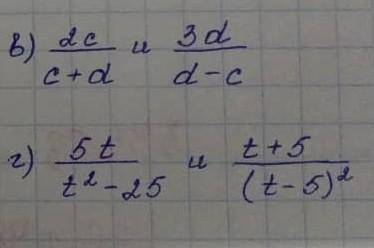 в) 2c/(c+d) и 3d/(d-c)
г) 5t/(t²-25) и (t+5)/(t-5)²